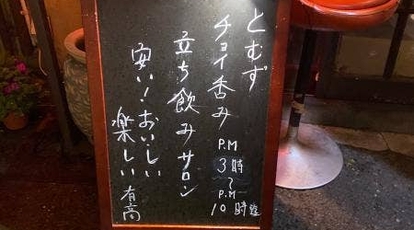 とむず
チョイ呑み
P.M
3時
〜
P.M
10時
立ち飲みサロン
安い！おいしい
楽しい